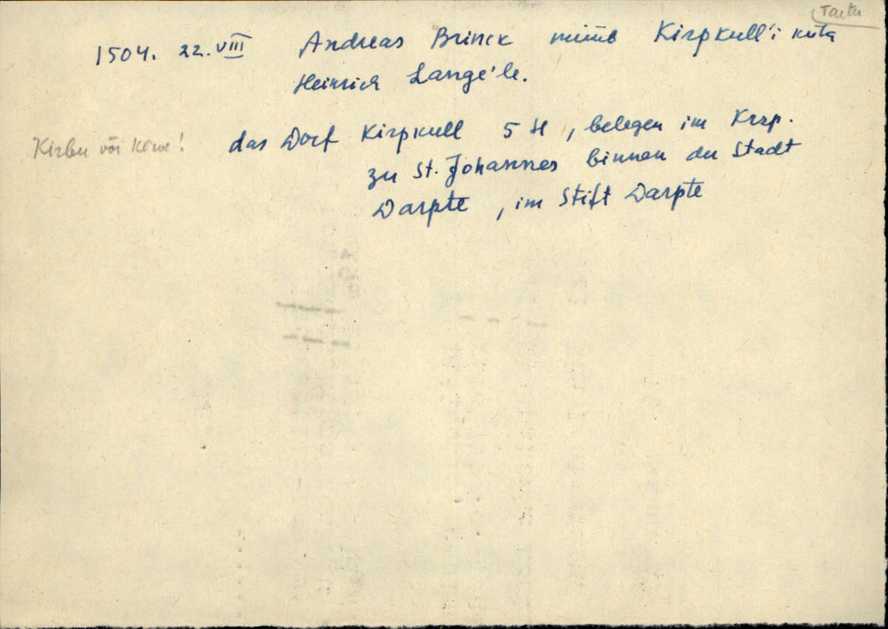 Tartu
1504. 22.VIII Andreas Brinck müüb Kirpkull'i küla
Heinrich Lange'le.
das Dorf Kirpkull 5 H, belegen im Krsp.
zu St. Johannes binnen der Stadt
Darpte, im Stift Darpte
Kirbu või !